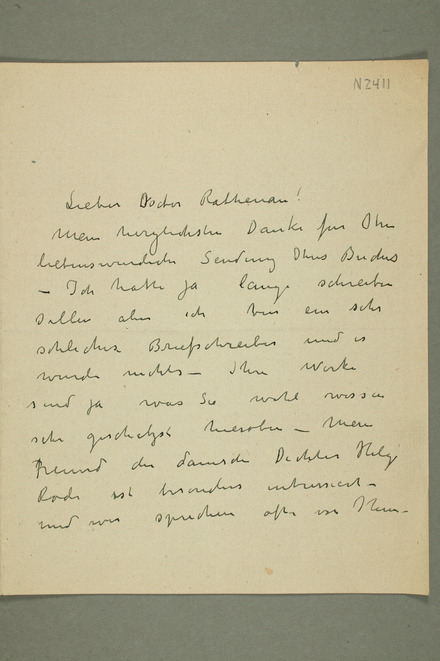 N2411
Lieber Doctor Rathenau!
Mein herzlichster Danke für Ihre
liebenswürdiche Sendung Ihres Buches
– Ich hatte ja lange schreiben
sollen aber ich bin ein sehr
schlichter Briefschreiber und es
wurde nichts – Ihre Werke
sind ja was Sie wohl wissen
sehr geschatzt hieroben – Mein
Freund der danische Dichter Helge
Rode ist besonders intressiert –
und wir sprechen ofte von Ihnen –